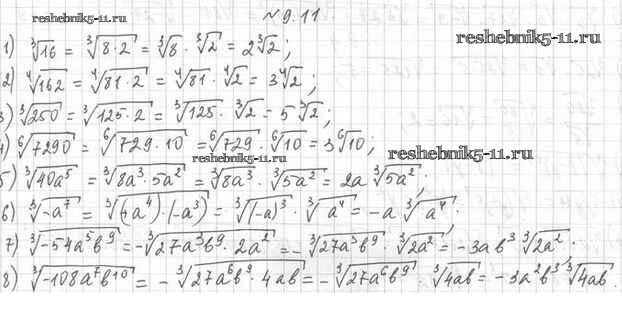 reshebnik5-11.ru
№9.11
reshebnik5-11.ru
1) ∛16 = ∛(8·2) = ∛8 · ∛2 = 2∛2;
2) ∜162 = ∜(81·2) = ∜81 · ∜2 = 3∜2;
3) ∛250 = ∛(125·2) = ∛125 · ∛2 = 5∛2;
4) ⁶√7290 = ⁶√(729·10) = ⁶√729 · ⁶√10 = 3⁶√10;
reshebnik5-11.ru
reshebnik5-11.ru
5) ∛(40a⁵) = ∛(8a³·5a²) = ∛(8a³) · ∛(5a²) = 2a ∛(5a²);
6) ∛(-a⁷) = ∛((a⁴)·(-a³)) = ∛((-a)³) · ∛(a⁴) = -a ∛(a⁴);
7) ∛(-54a⁵b⁹) = -∛(27a³b⁹·2a²) = -∛(27a³b⁹) · ∛(2a²) = -3ab³ ∛(2a²);
8) ∛(-108a⁷b¹⁰) = -∛(27a⁶b⁹·4ab) = -∛(27a⁶b⁹) · ∛(4ab) = -3a²b³ ∛(4ab).